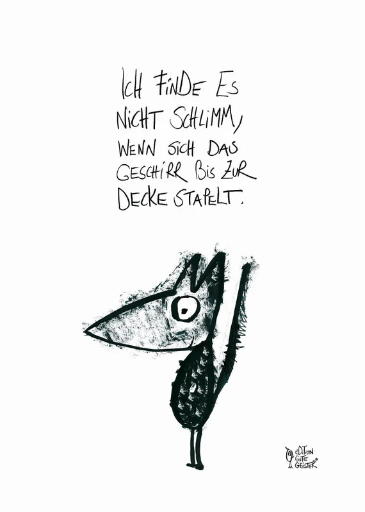 ICH FINDE ES
NICHT SCHLIMM,
WENN SICH DAS
GESCHIRR BIS ZUR
DECKE STAPELT.
EDITION
GUTE
GEISTER